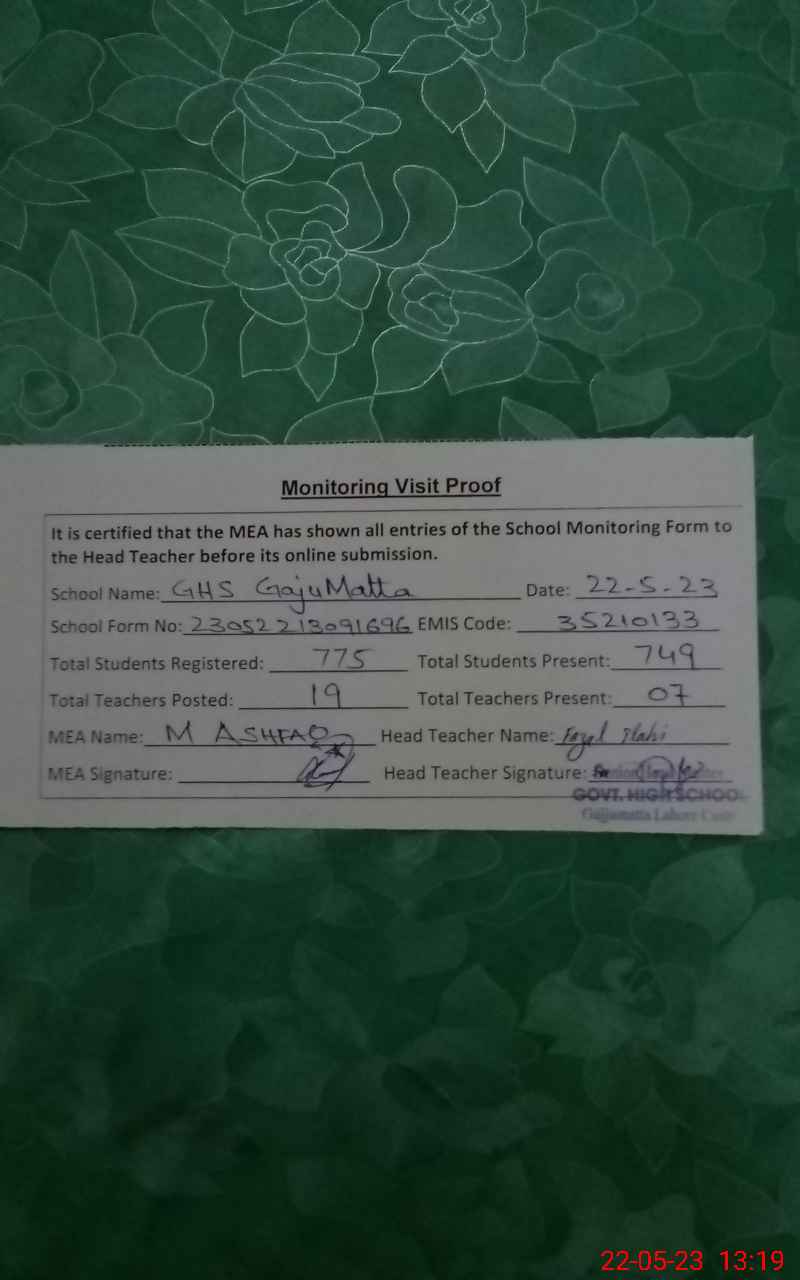 Monitoring Visit Proof
It is certified that the MEA has shown all entries of the School Monitoring Form to
the Head Teacher before its online submission.
School Name: GHS GajuMatta Date: 22-5-23
School Form No: 23052213091696 EMIS Code: 35210133
Total Students Registered: 775 Total Students Present: 749
Total Teachers Posted: 19 Total Teachers Present: 07
MEA Name: M ASHFAQ Head Teacher Name: Fazal Ilahi
MEA Signature: Head Teacher Signature:
GOVT. HIGH SCHOOL
Gajjumatta Lahore Cantt
22-05-23 13:19